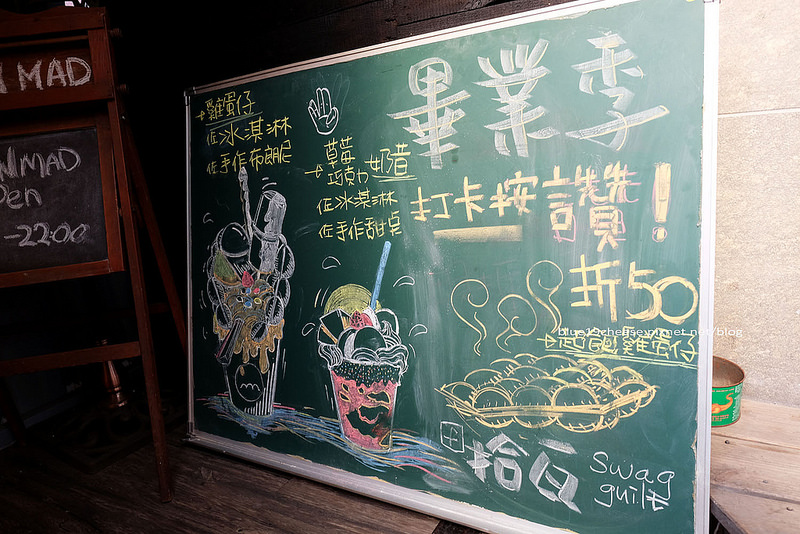 N MAD
NMAD
Pen
-22:00
雞蛋仔
佐冰淇淋
佐手作布朗尼
草莓
巧克力 奶昔
佐冰淇淋
佐手作甜点
畢業季
打卡按讚!
折50
blue19cheese.pixnet.net/blog
起司雞蛋仔
拾夏
Swag